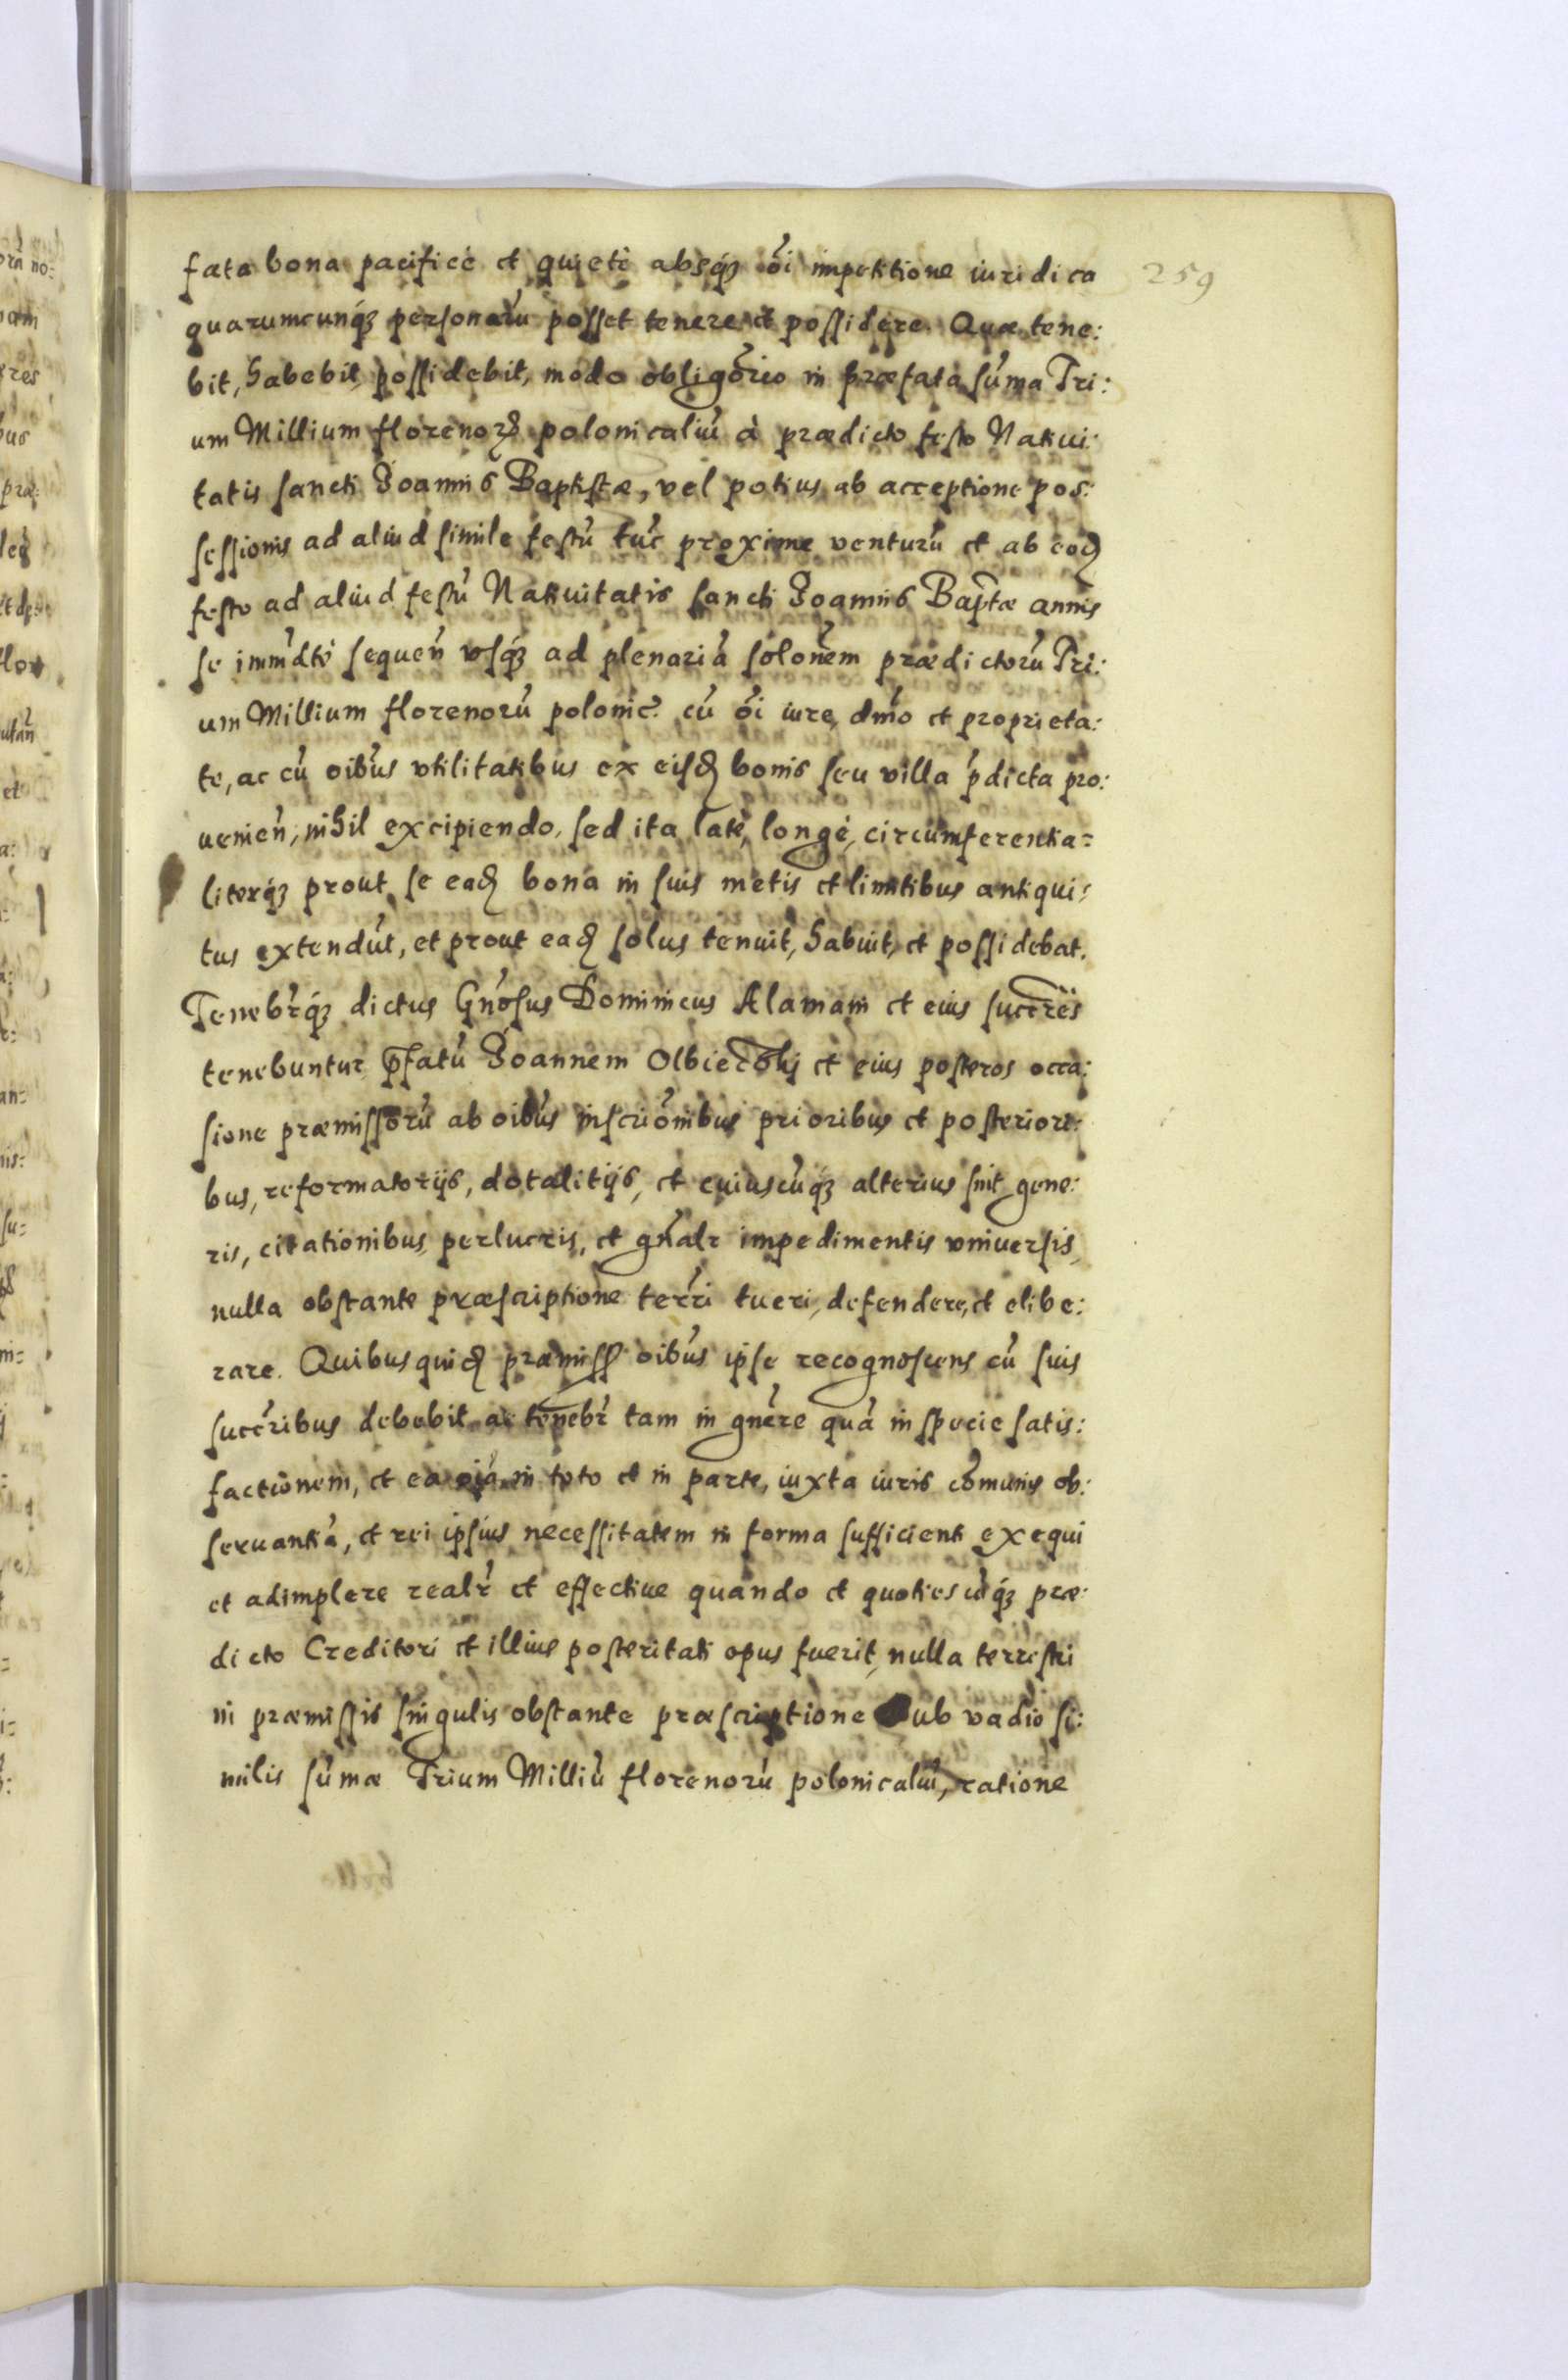 fata bona pacificè et quietè absq́ꝫ oī́ impetitione iuridica
259
quarumcunq́ꝫ personarū posset tenere et possidere. Quæ tene:
bit, habebit, possidebit, modo obligōrio in præfata sūma Tri:
um Millium florenorꝫ polonicaliū à prædicto festo Natiui:
tatis sancti Joannis Baptistæ, vel potius ab acceptione pos:
sessionis ad aliud simile festū tūc proxime venturū et ab eod
festo ad aliud festū Natiuitatis sancti Joannis Bap̄tæ annis
se imm̄dtè sequen̄ vsq́ꝫ ad plenariā solōnem prædictorū Tri:
um Millium florenorū polonic̄. cū oī iure, dn̄io et proprieta:
te, ac cū oibūs vtilitatibus ex eisd bonis seu villa p̄dicta pro:
uenien̄, nihil excipiendo, sed ita latè, longè, circumferentia:
literq́ꝫ prout se ead bona in suis metis et limitibus antiqui:
tus extendūt, et prout ead solus tenuit, habuit, et possidebat.
Tenebr̄q́ꝫ dictus Gn̄osus Dominicus Alamani et eius succr̄es
tenebuntur p̄fatū Joannem et eius posteros occa:
sione præmissorū ab oibūs inscriōnibus prioribus et posteriori:
bus, reformatorijs, dotalitijs, et cuiuscūq́ꝫ alterius sint gene:
ris, citationibus, perlucris, et gn̄alr impedimentis vniuersis,
nulla obstante præscriptione terr̄i tueri, defendere, et elibe:
rare. Quibus quid præmiss oibūs ipse recognoscens cū suis
succr̄ibus debebit ac tenebr̄ tam in gn̄ere quā in specie satis:
factionem, et ea oīa in toto et in parte, iuxta iuris cōmunis ob:
seruantiā, et rei ipsius necessitatem in forma sufficienti exequi
et adimplere realr̄ et effectiue quando et quotiescūq́ꝫ præ:
dicto Creditori et illius posteritati opus fuerit, nulla terrestri
in præmissis singulis obstante præscriptione Sub vadio si:
milis sūmæ Trium Milliū florenorū polonicaliū, ratione